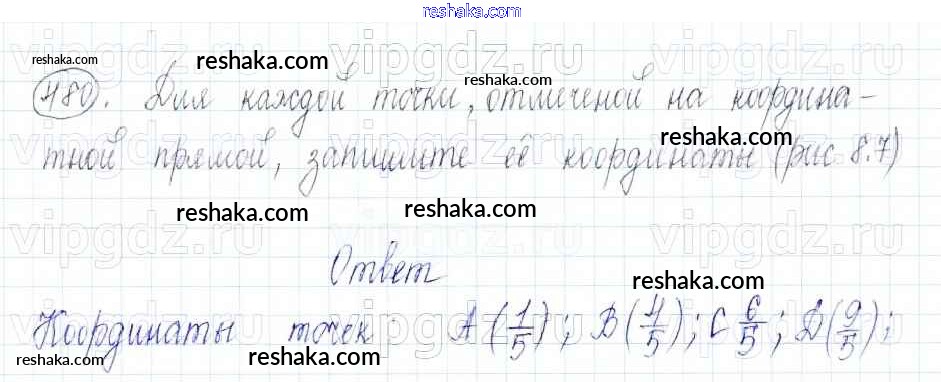 reshaka.com
vipgdz.ru vipgdz.ru vipgdz.ru
reshaka.com reshaka.com reshaka.com
480. Для каждой точки, отмеченой на координа-
reshaka.com
тной прямой, запишите её координаты (рис 8.7)
reshaka.com reshaka.com
vipgdz.ru vipgdz.ru vipgdz.ru
Ответ
reshaka.com
Координаты точек: A(1/5); B(4/5); C 6/5; D(9/5);
reshaka.com reshaka.com